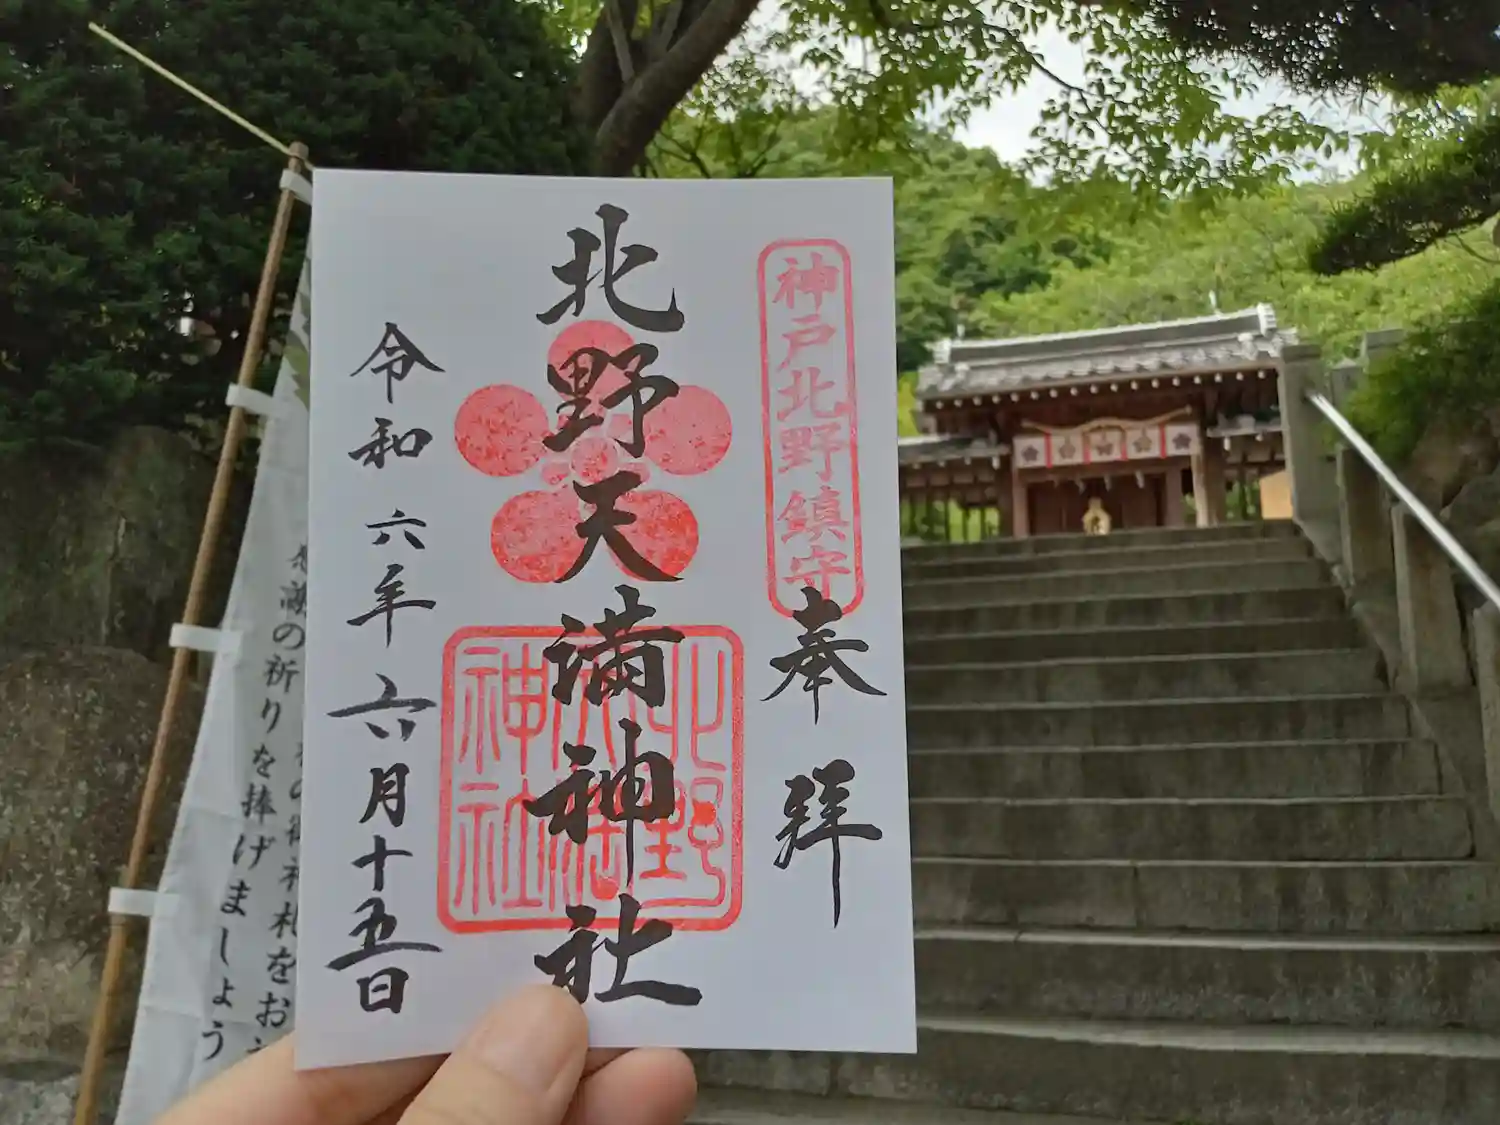 神戸北野鎮守
奉拝
北野天満神社
北野
天満
神社
令和六年六月十五日
の御神札をお
感謝の祈りを捧げましょう